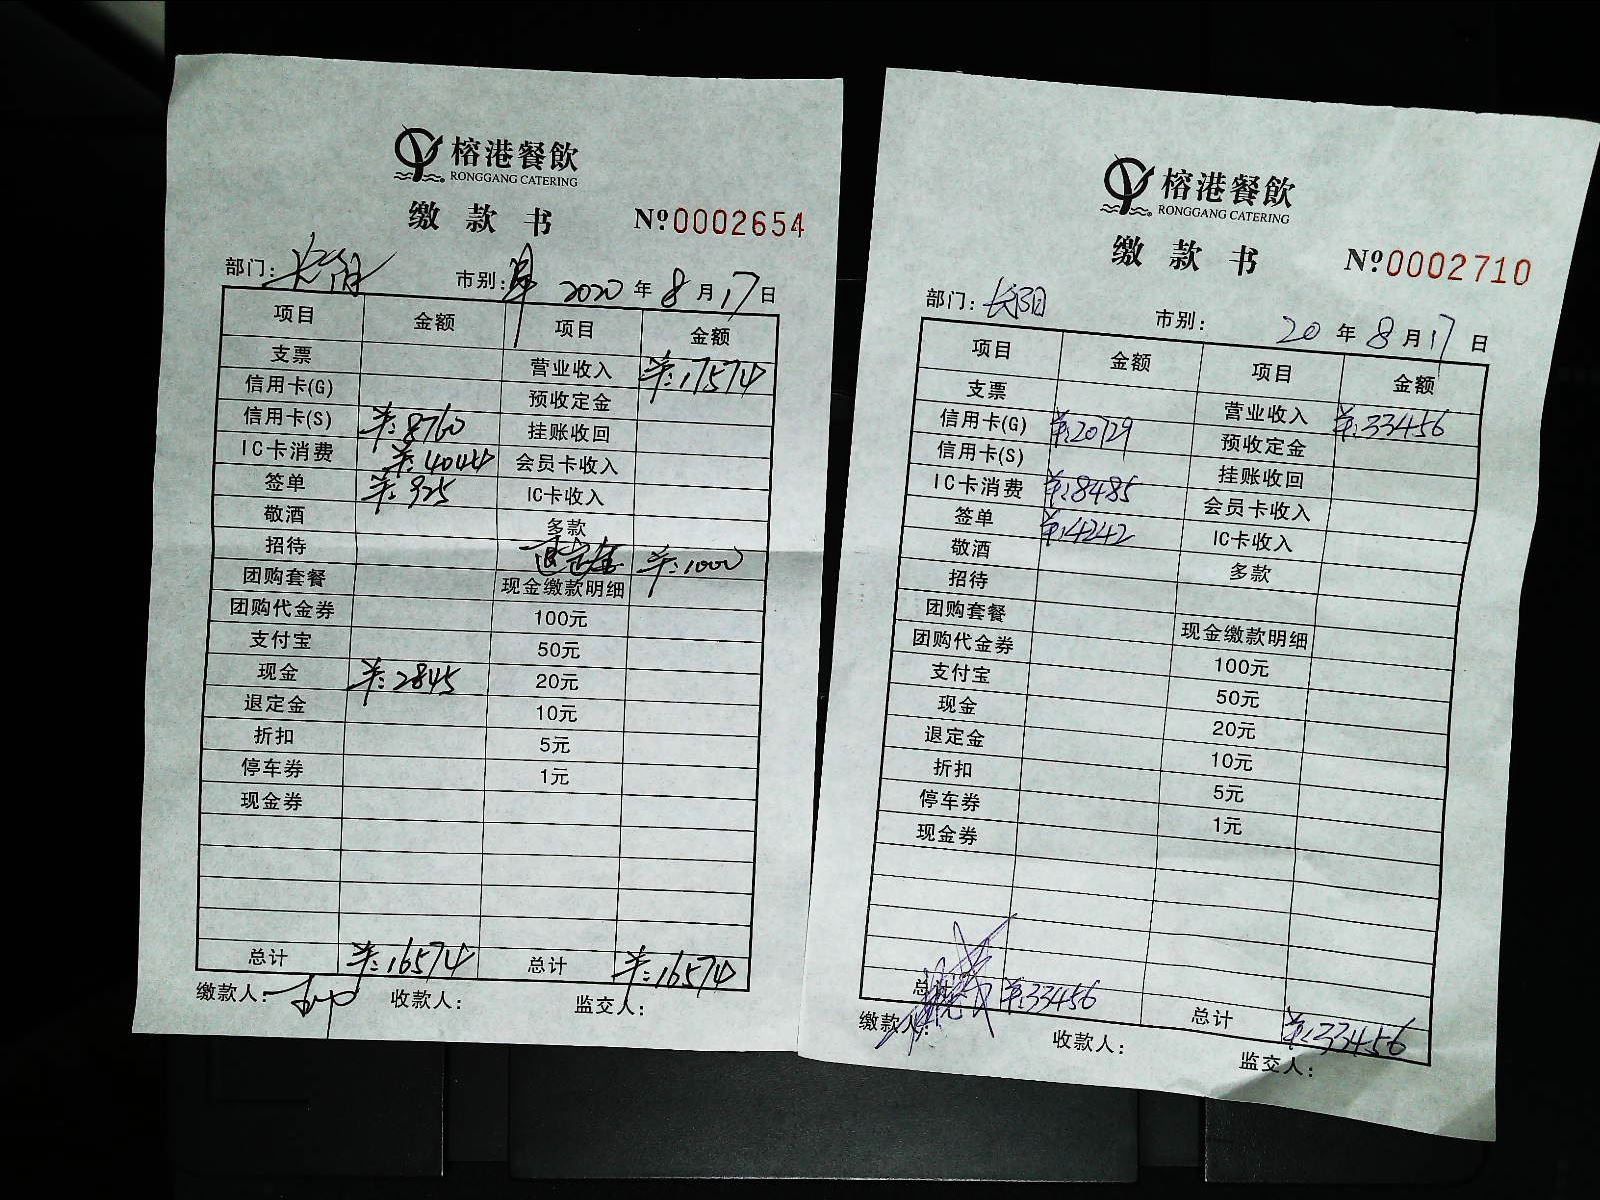 榕港餐飲
RONGGANG CATERING
缴款书 №0002654
部门: 市别: 2020 年 8 月 17 日
项目 金额 项目 金额
支票 营业收入 ¥:17574
信用卡(G) 预收定金
信用卡(S) ¥:8760 挂账收回
IC卡消费 ¥:4044 会员卡收入
签单 ¥:925 IC卡收入
敬酒 多款
招待 退定金 ¥:1000
团购套餐 现金缴款明细
团购代金券 100元
支付宝 50元
现金 ¥:2845 20元
退定金 10元
折扣 5元
停车券 1元
现金券
总计 ¥:16574 总计 ¥:16574
缴款人: 收款人: 监交人:
榕港餐飲
RONGGANG CATERING
缴款书 №0002710
部门: 长阳 市别: 20 年 8 月 17 日
项目 金额 项目 金额
支票 营业收入 ¥:33456
信用卡(G) ¥:20729 预收定金
信用卡(S) 挂账收回
IC卡消费 ¥:8485 会员卡收入
签单 ¥:4242 IC卡收入
敬酒 多款
招待
团购套餐 现金缴款明细
团购代金券 100元
支付宝 50元
现金 20元
退定金 10元
折扣 5元
停车券 1元
现金券
总计 ¥:33456 总计 ¥:33456
缴款人: 收款人: 监交人: